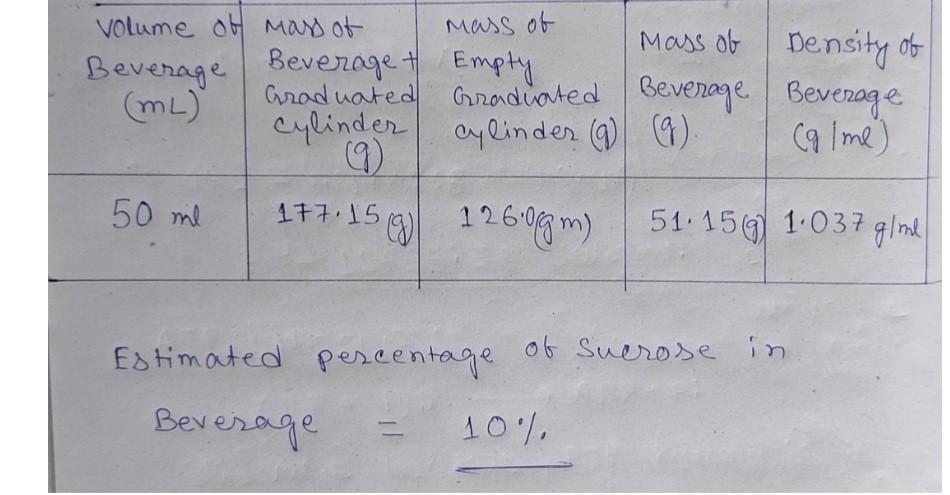 Volume of
Beverage
(mL)
Mass of
Beverage +
Graduated
cylinder
(g)
Mass of
Empty
Graduated
cylinder (g)
Mass of
Beverage
(g).
Density of
Beverage
(g/ml)
50 ml
177.15 (g)
126.0(gm)
51.15(g)
1.037 g/ml
Estimated percentage of Sucrose in
Beverage = 10%.